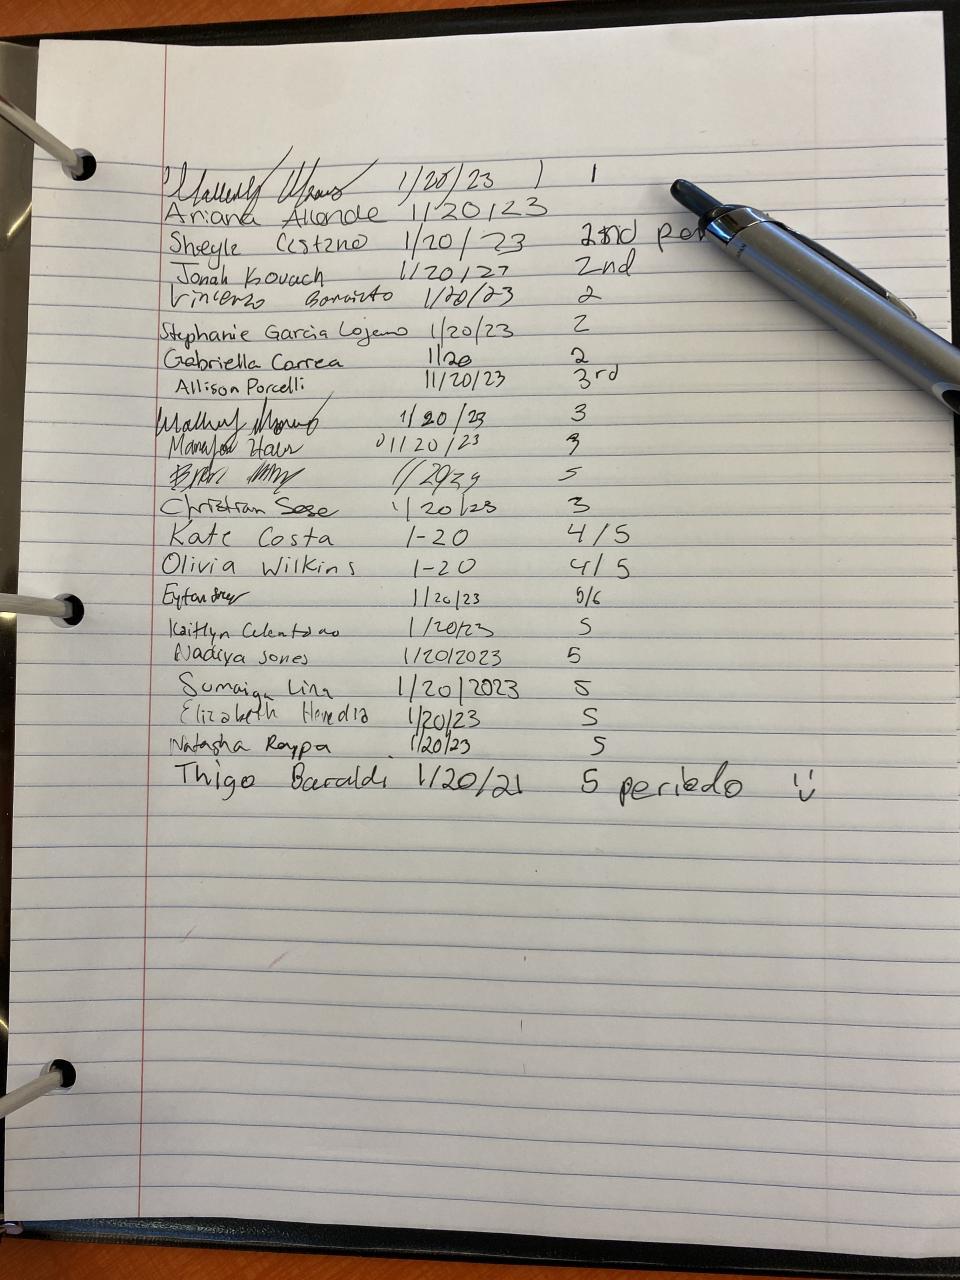 1/20/23 1 1
Ariana Allonde 1/20/23
Sheyla 1/20/23 2nd per
Jonah Kovach 1/20/27 2nd
Vincenzo 1/20/23 2
Stephanie Garcia Lojano 1/20/23 2
Gabriella Correa 1/20 2
Allison Porcelli 11/20/23 3rd
1/20/23 3
1/20/23 3
5
Christian 1/20/23 3
Kate Costa 1-20 4/5
Olivia Wilkins 1-20 4/5
1/20/23 5/6
Kaitlyn 1/20/23 5
Nadiya Jones 1/20/2023 5
Sumaiya Lira 1/20/2023 5
Elizabeth Heredia 1/20/23 5
Natasha Raypa 1/20/23 5
Thigo Baraldi 1/20/21 5 periedo